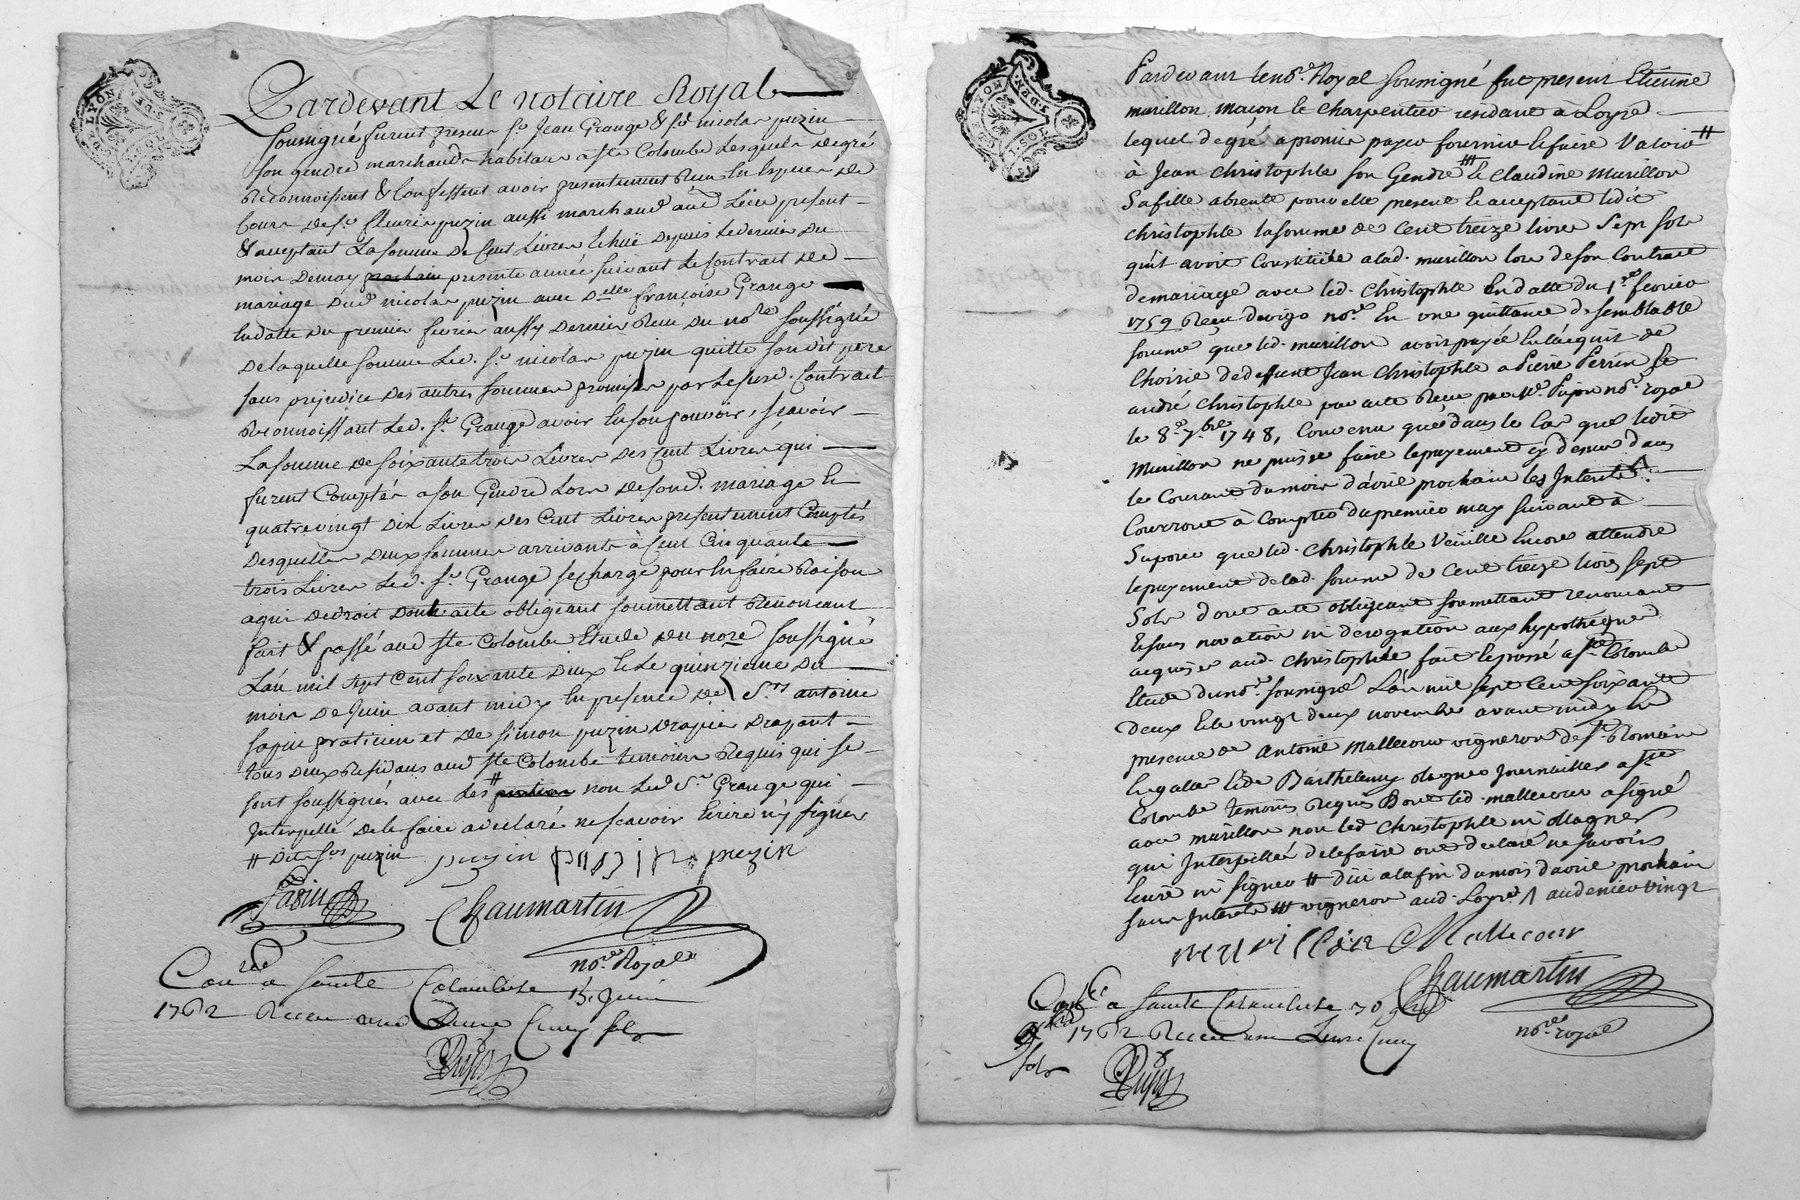 DE LYON
Pardevant Le notaire Royal
soussigné furent presens Sr. Jean Grange & Sr. nicolas puzin
son gendre marchands habitans a Ste Colombe Lesquels de gré
Reconnoissent & Confessent avoir presentement Reçu En Espèces de
Cours de Sr. fleurie puzin aussi marchand aud Lieu present
& acceptant La somme de Cent Livres Echuë depuis le dernier du
mois de may prochain presente année suivant le Contrait de
mariage dud nicolas puzin avec delle françoise Grange
En datte du premier fevrier aussy dernier Reçu du nore soussigné
de laquelle somme Led. Sr. nicolas puzin quitte son dit pere
sans prejudice des autres sommes promises par Le susd. Contrait
Reconnoissant Led. Sr. Grange avoir En son pouvoir, sçavoir
La somme de soixante trois Livres des Cent Livres qui
furent Comptés a son Gendre Lors de sond. mariage Et
quatrevingt dix Livres des Cent Livres presentement Comptés
desquelles deux sommes arrivants à Cent Cinquante
trois Livres Led. Sr. Grange se charge pour En faire Raison
a qui de droit dont acte obligeant soumettant Renoncant
fait & passé aud Ste Colombe Etude du nore soussigné
L'an mil sept Cent soixante deux & Le quinzieme du
mois de Juin avant midy En presence de Srs antoine
sapin praticien et de simon puzin drapier drapant
tous deux Residans aud Ste Colombe temoins Requis qui se
sont soussignés avec Les # non Led Sr. Grange qui
Interpellé de le faire a déclaré ne scavoir Ecrire n'y signer
# Dits Srs puzin puzin puzin puzin
Sapin Chaumartin
nore. Royal
Conlé a Sainte Colombe 15 Juin
1762 Receu une Livre Cinq sols
DE LYON
Pardevant le nore. Royal soussigné fut present Etienne
murillon maçon & Charpentier residant a Loyre
lequel de gré a promis payer fournir & faire Valoir #
à Jean Christophle son Gendre & Claudine Murillon
sa fille absente pour elle present & acceptant ledit
Christophle la somme de Cent treize livres sept sols
qu'il avoit Constituée a lad. murillon lors de son Contract
de mariage avec led. Christophle En datte du 1er. fevrier
1759 Reçu nore. En une quittance de semblable
somme que led. murillon avoit payée En l'acquit de
l'hoirie de deffunt Jean Christophle a Pierre Perrin &
andré Christophle par acte Reçu par Me. nore. royal
le 8e. 7bre 1748, Convenu que dans le Cas que ledit
Murillon ne puisse faire le payement cy dessus dans
le Courant du mois d'avril prochain les Interets
Courront à Compter du premier may suivant à
Suposer que led. Christophle Veuille Encore attendre
le payement de lad. somme de Cent treize livres sept
Sols dont acte obligeant soumettant renoncant
Et sans novation ni derogation aux hypothèques
acquises aud. Christophle fait & passé a Ste Colombe
Etude du nore. soussigné L'an mil sept Cent soixante
deux & le vingt deux novembre avant midy En
presence de antoine Mallecour vigneron de St. Romain
En galle & de Barthelemy Magner Journallier a Ste
Colombe temoins Requis Dont led. mallecour a signé
avec murillon non led Christophle ni Magner
qui Interpellés de le faire ont declaré ne savoir
Ecrire ni signer # dici a la fin du mois d'avril prochain
sans Interets # vigneron aud. Loyre / au denier vingt
murillion Mallecour
Chaumartin
nore. royal
Conlé a Sainte Colombe 30 9bre
1762 Receu une Livre Cinq
sols